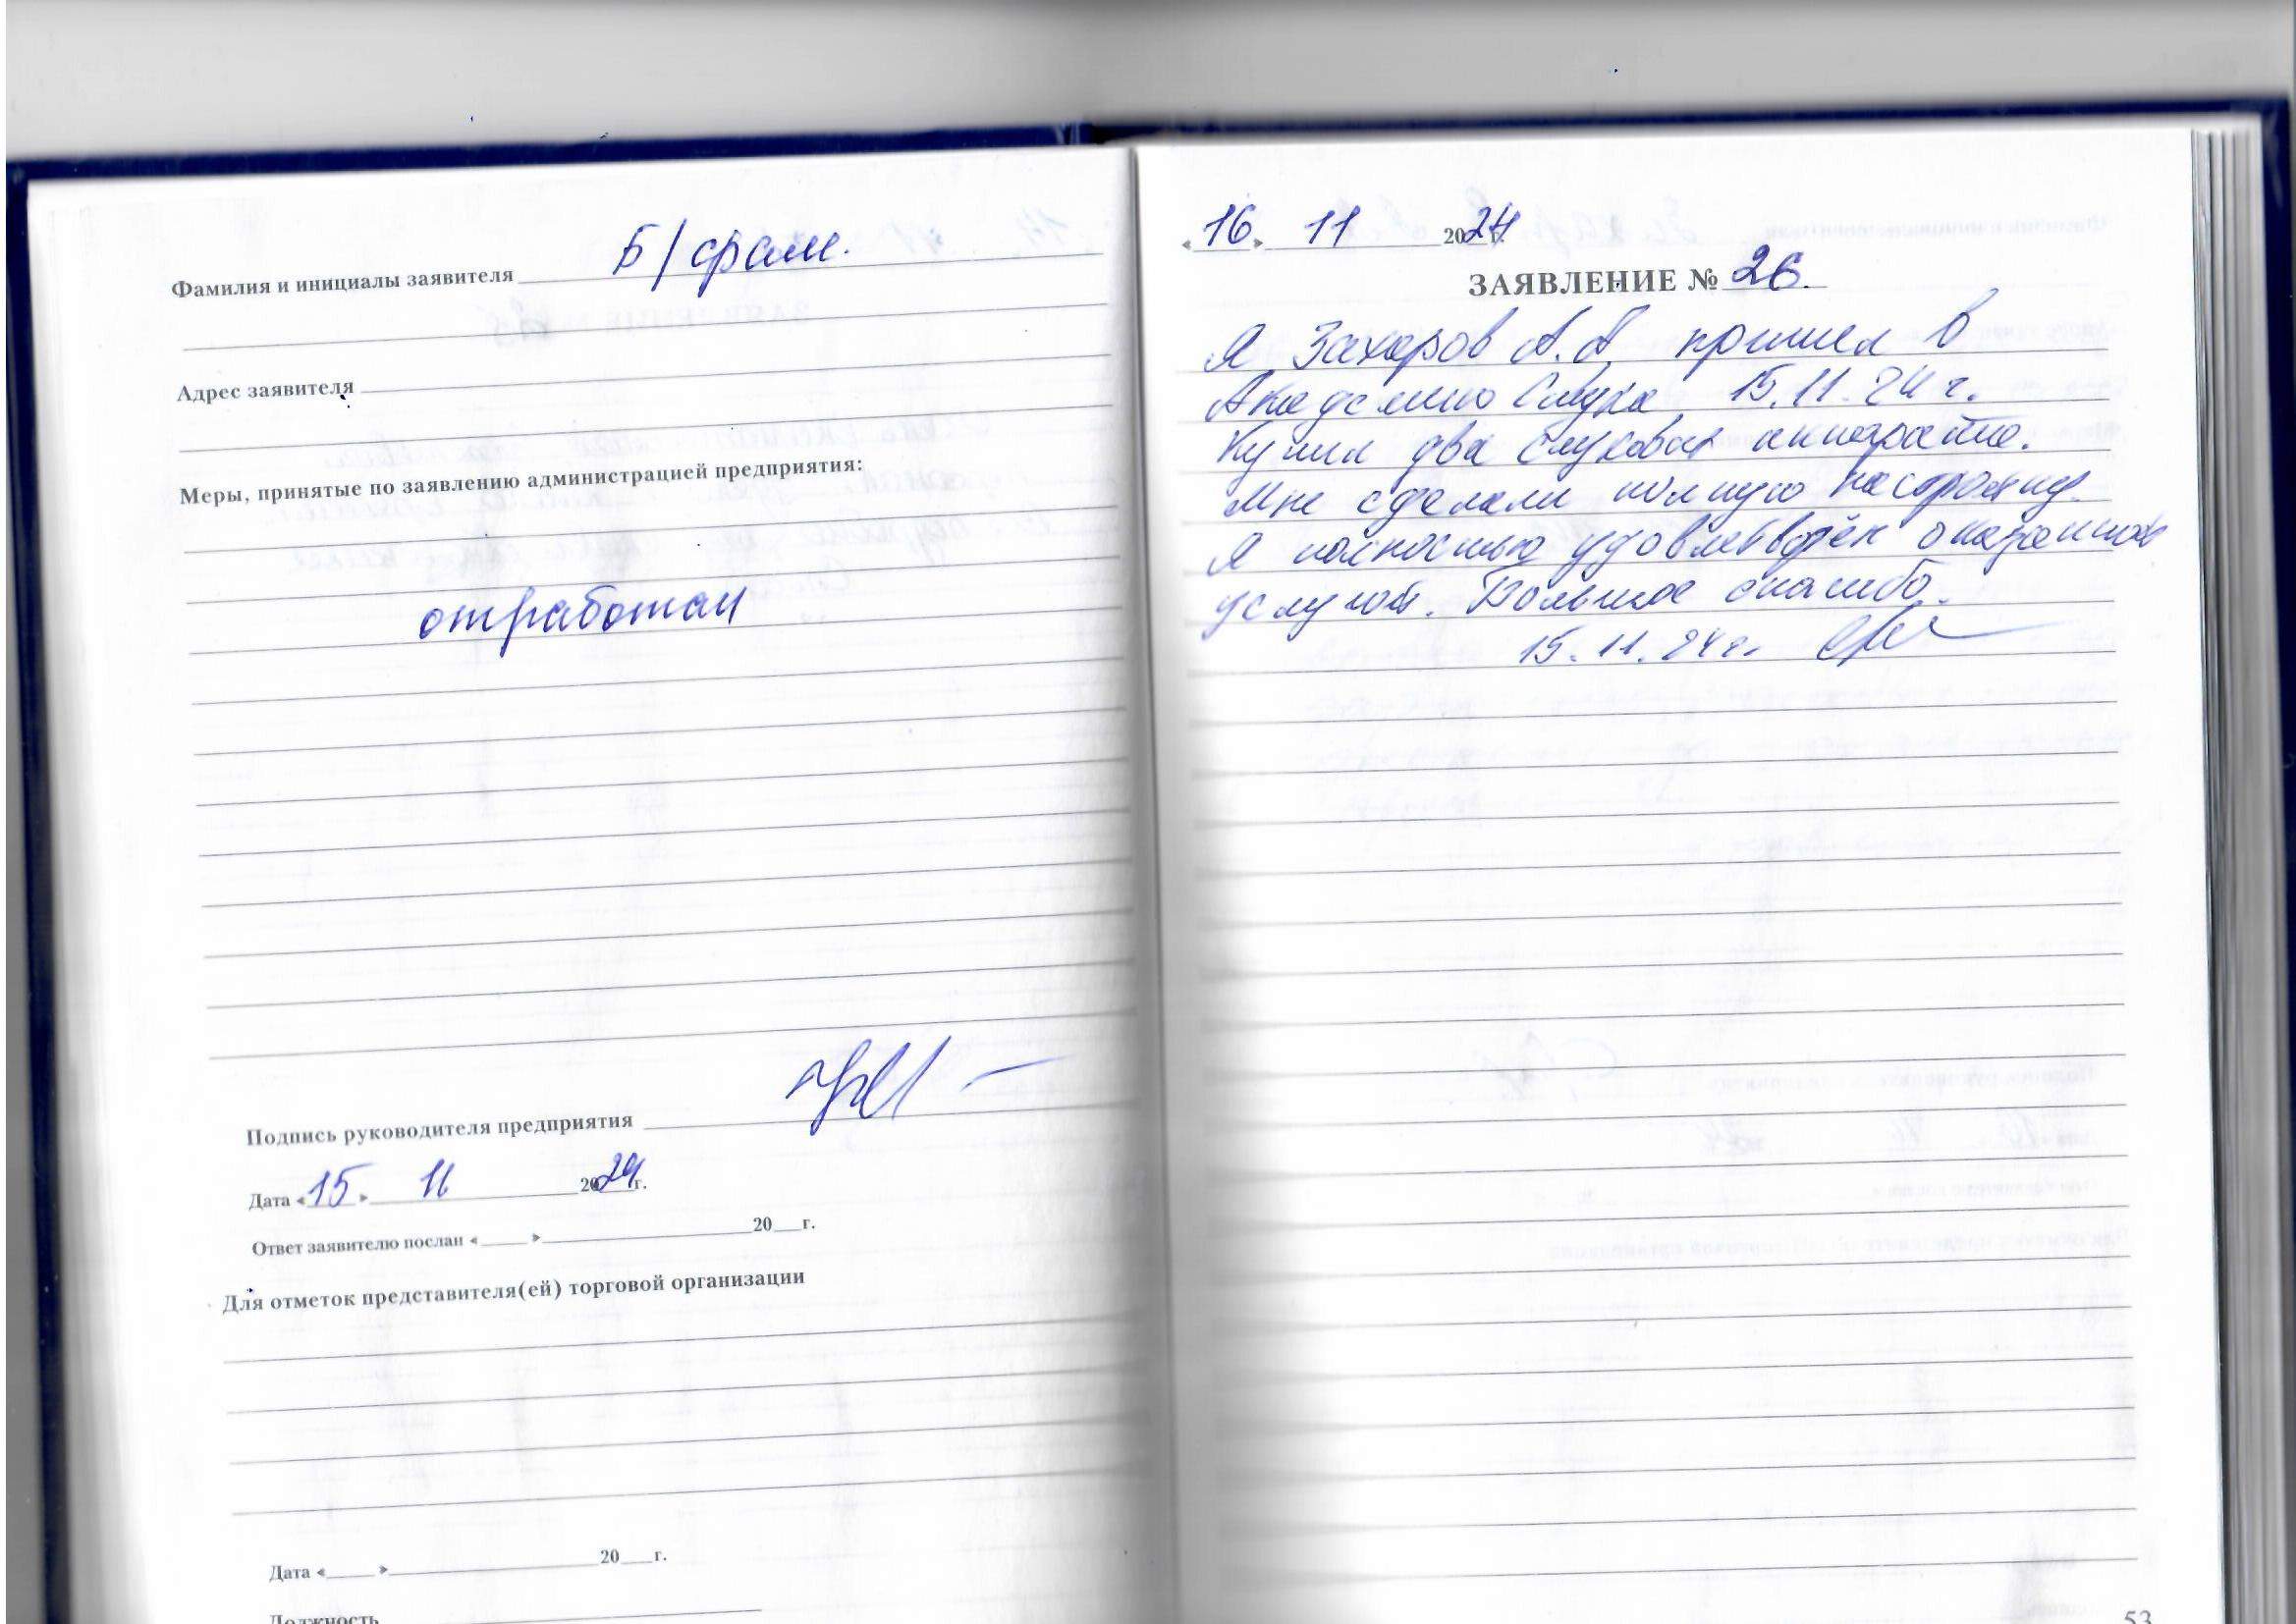 Фамилия и инициалы заявителя Б/фам.
Адрес заявителя
Меры, принятые по заявлению администрацией предприятия:
отработан
Подпись руководителя предприятия
Дата «15» 11 2024г.
Ответ заявителю послан «   »   20   г.
Для отметок представителя(ей) торговой организации
Дата «   »   20   г.
Должность
«16» 11 2024г.
ЗАЯВЛЕНИЕ № 26.
Я Захаров А.А. пришел в
Академию Слуха 15.11.24 г.
Купил два слуховых аппарата.
Мне сделали полную настройку.
Я полностью удовлетворён оказанной
услугой. Большое спасибо.
15.11.24г.
53